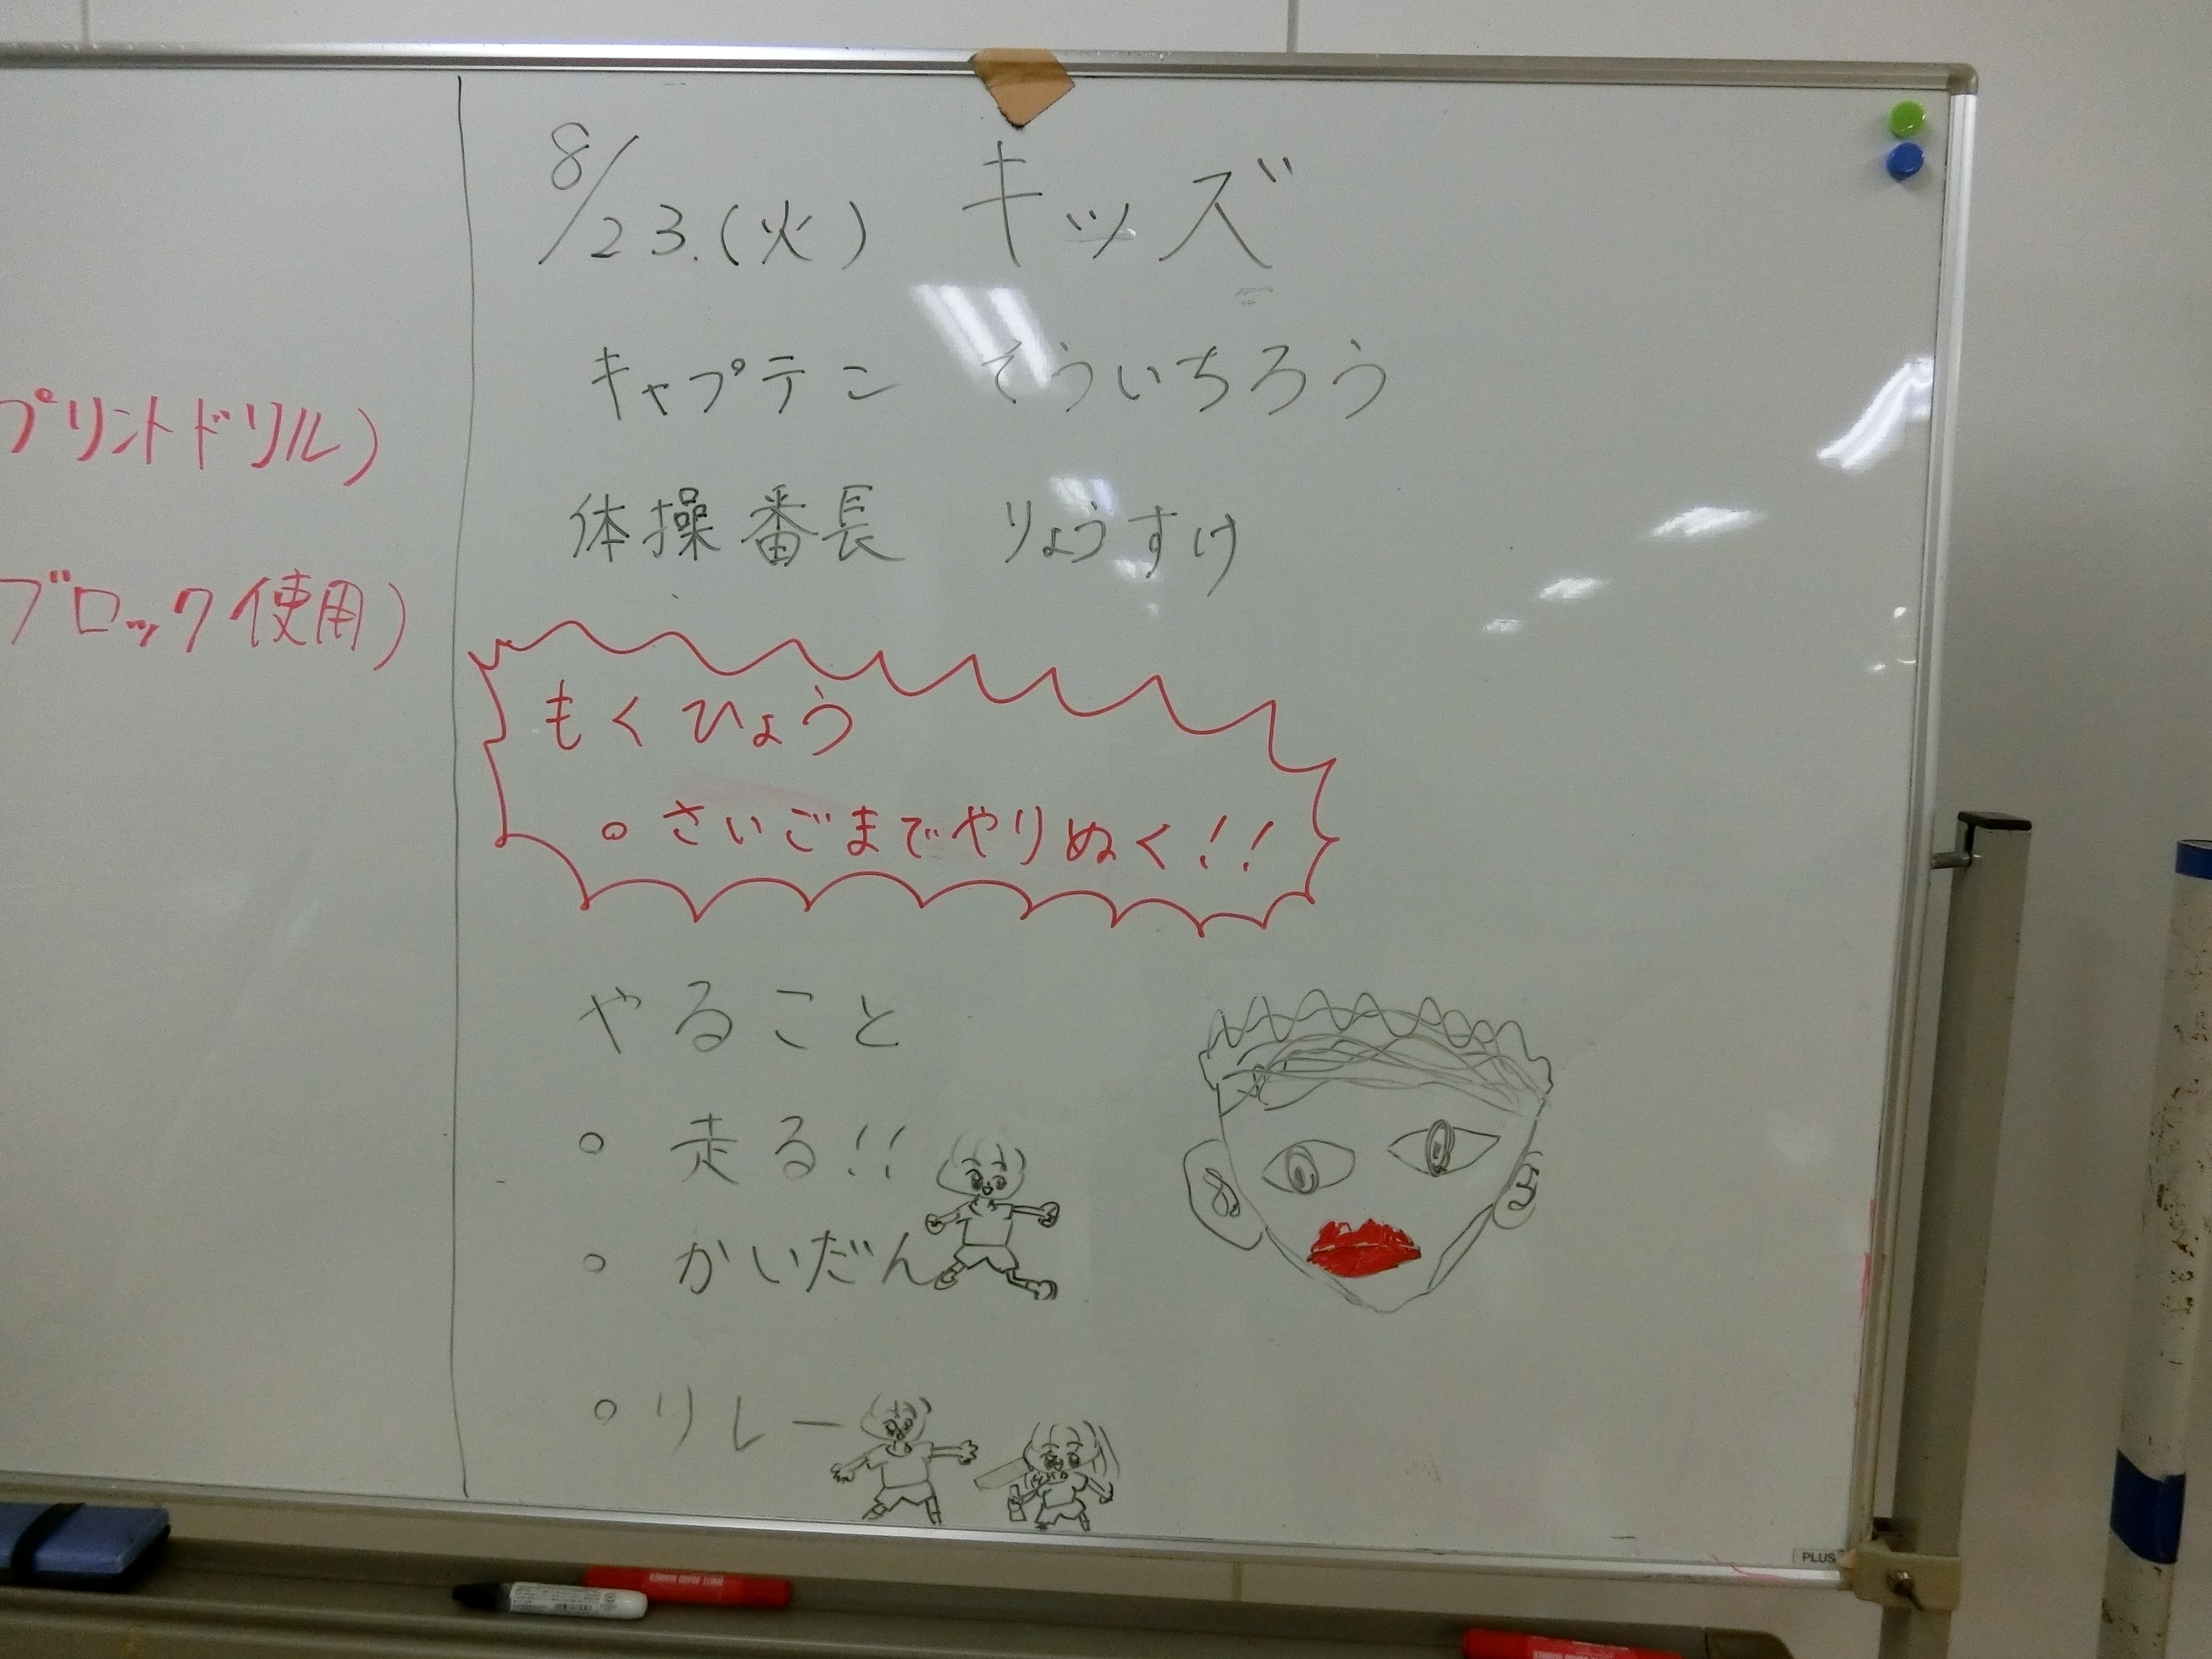 プリントドリル)
ブロック使用)
8/23.(火) キッズ
キャプテン そういちろう
体操番長 りょうすけ
もくひょう
○ さいごまでやりぬく!!
やること
○ 走る!!
○ かいだん
○ リレー
PLUS